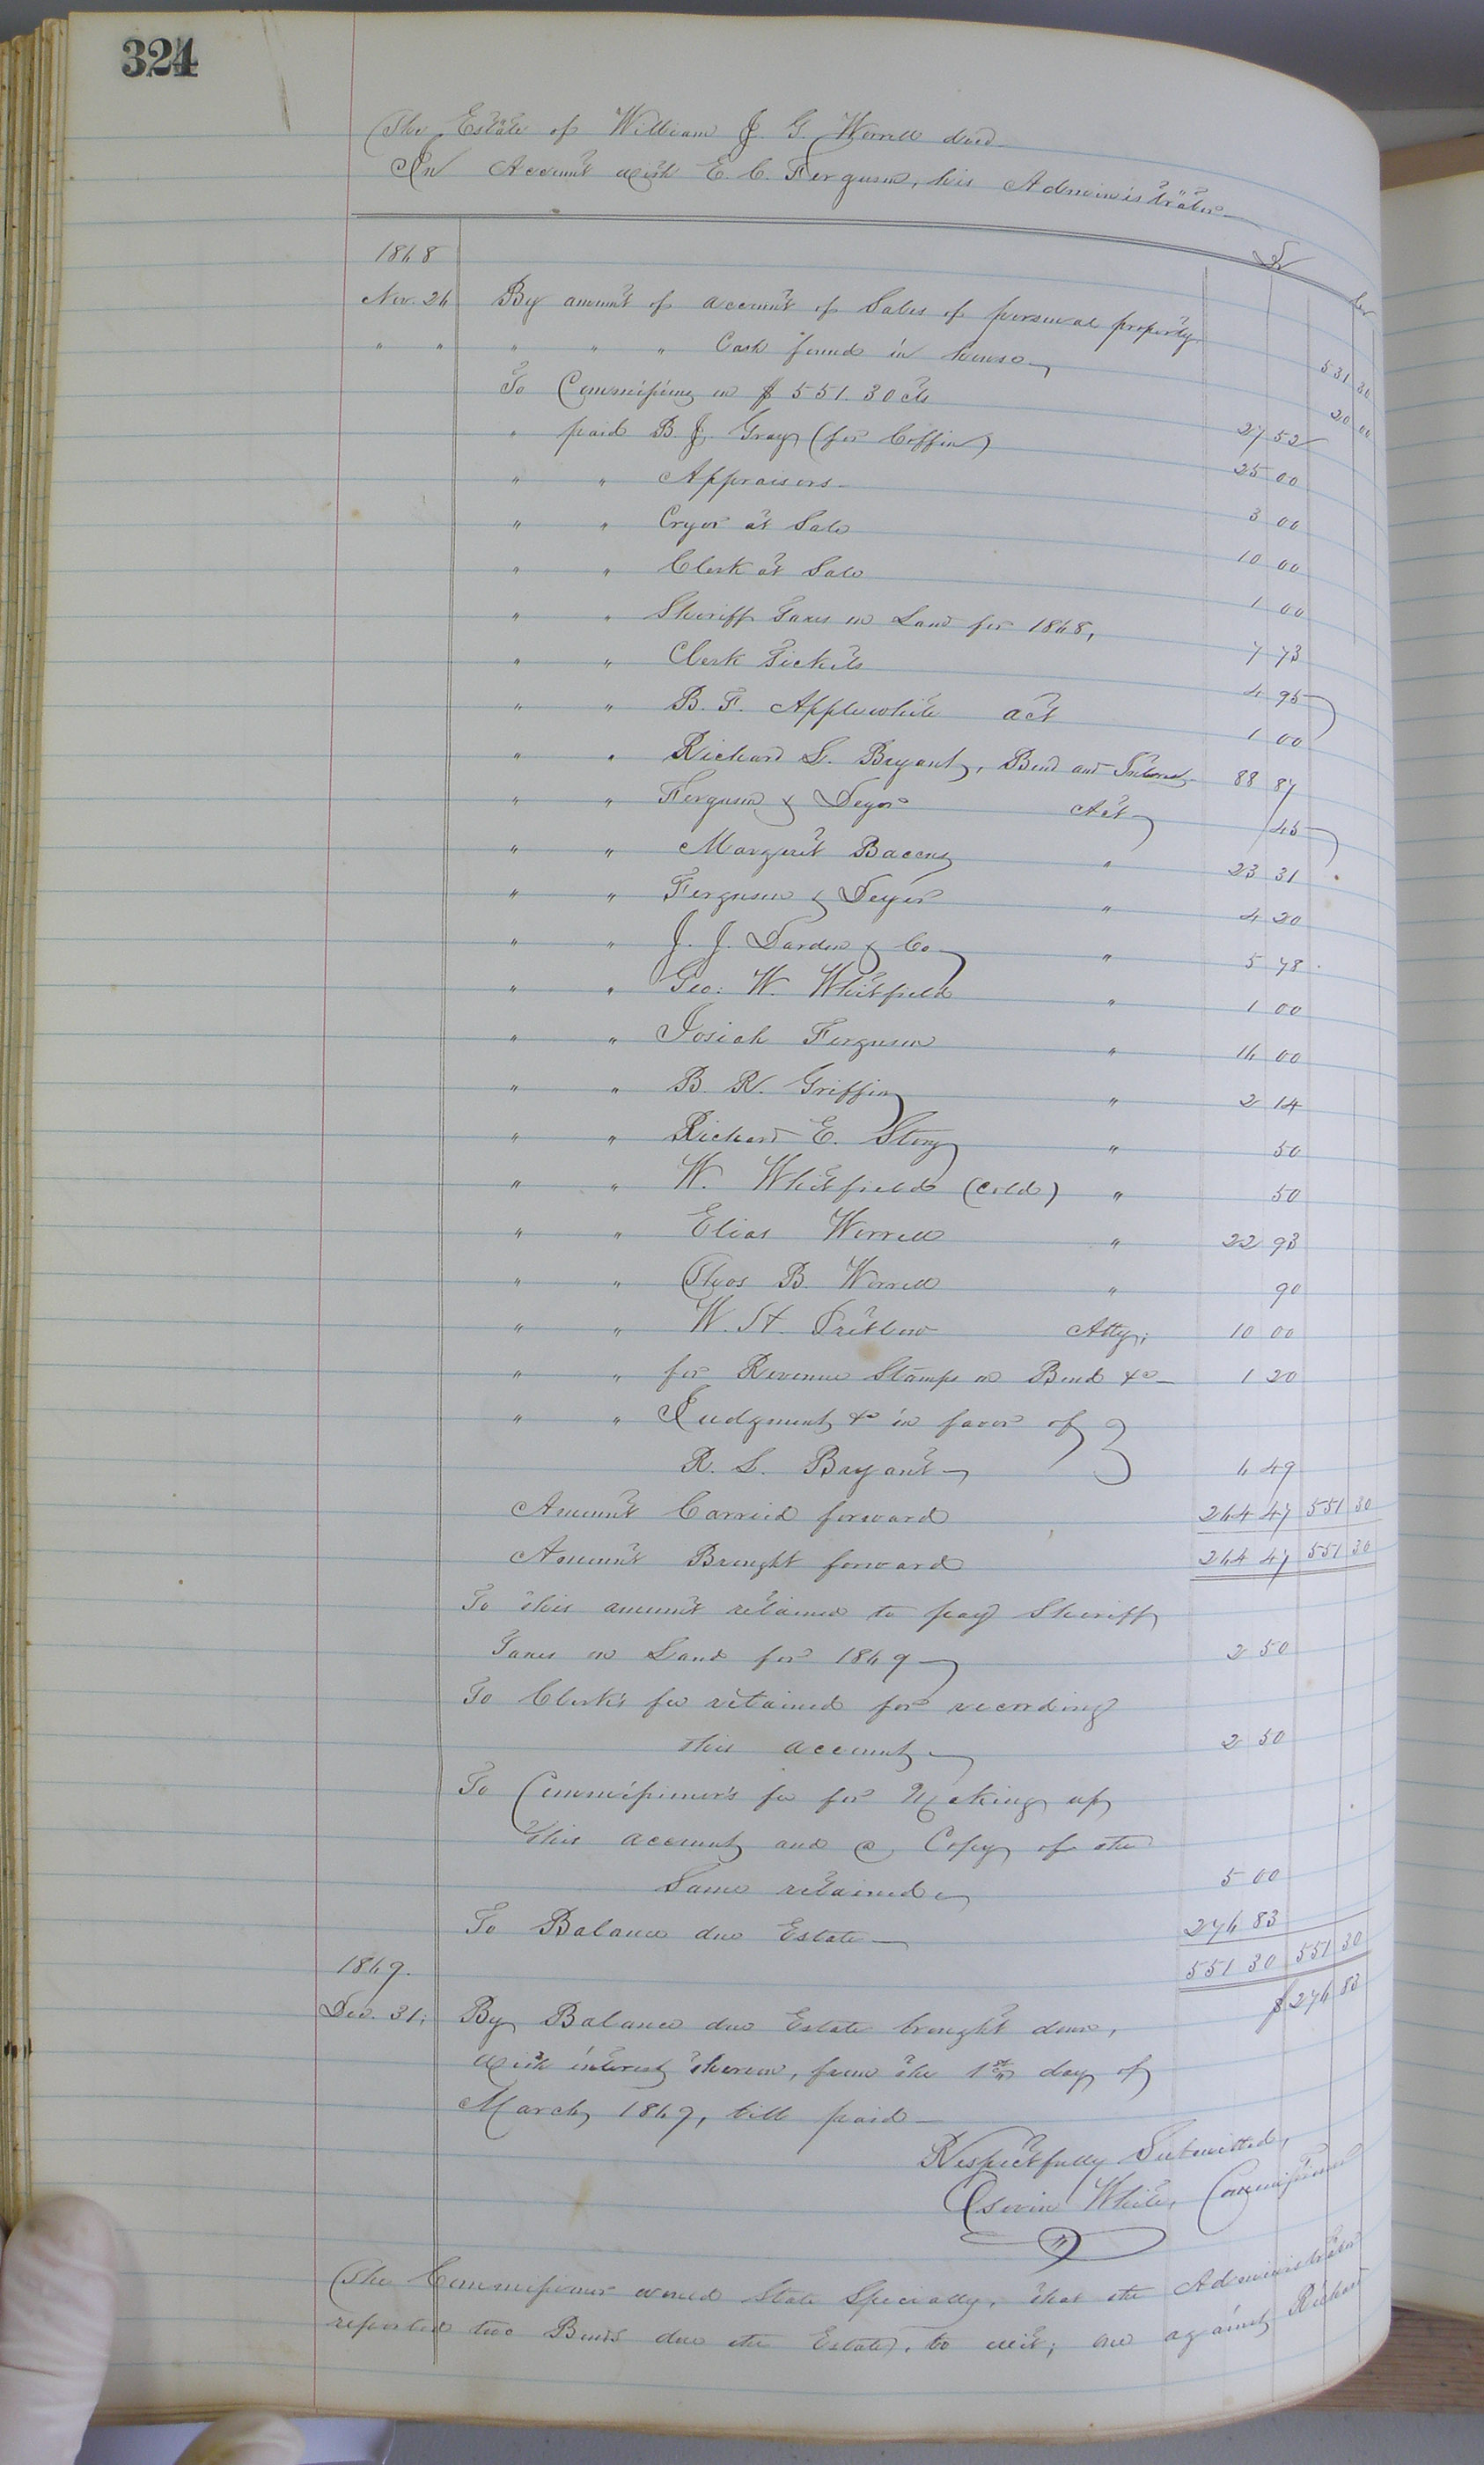 324
The Estate of William J. G. Worrell decd
In Account with E. C. Ferguson, his Administrator
Dr Cr
1868
Nov. 26 By amount of account of Sales of personal property 531 30
" " " " " Cash found in house 20 00
To Commissions on $551.30 cts 27 52
" paid B. J. Gray (for Coffin) 25 00
" " Appraisors 3 00
" " Cryor at Sale 10 00
" " Clerk at Sale 1 00
" " Sheriff Taxes on Land for 1868, 7 73
" " Clerk Tickets 4 95
" " B. F. Applewhite act 1 00
" " Richard L. Bryant, Bond and Interest 88 87
" " Ferguson & Deyor Act 45
" " Margeret Bacon " 23 31
" " Ferguson & Deyor " 4 20
" " J. J. Darden & Co " 5 78
" " Geo: W. Whitfield " 1 00
" " Josiah Ferguson " 16 00
" " B. R. Griffin " 2 14
" " Richard E. Story " 50
" " W. Whitfield (cold) " 50
" " Elias Worrell " 22 93
" " Thos B. Worrell " 90
" " W. H. Pretlow Atty; 10 00
" " for Revenue Stamps on Bond &c 1 20
" " Judgment &c in favor of
R. L. Bryant 6 49
Amount Carried forward 264 47 551 30
Amount Brought forward 264 47 551 30
To this amount retained to pay Sheriff
Taxes on Land for 1869 2 50
To Clerk's fee retained for recording
this account 2 50
To Commissioner's fee for Making up
this account and a Copy of the
Same retained 5 00
To Balance due Estate 276 83
551 30 551 30
1869.
Dec. 31; By Balance due Estate brought down, $276 83
with interest thereon, from the 1st day of
March, 1869, till paid
Respectfully Submitted,
White, Commissioner
The Commissioner would State Specially, that the Administrator
reported two Bonds due the Estate, to wit; one against Richard